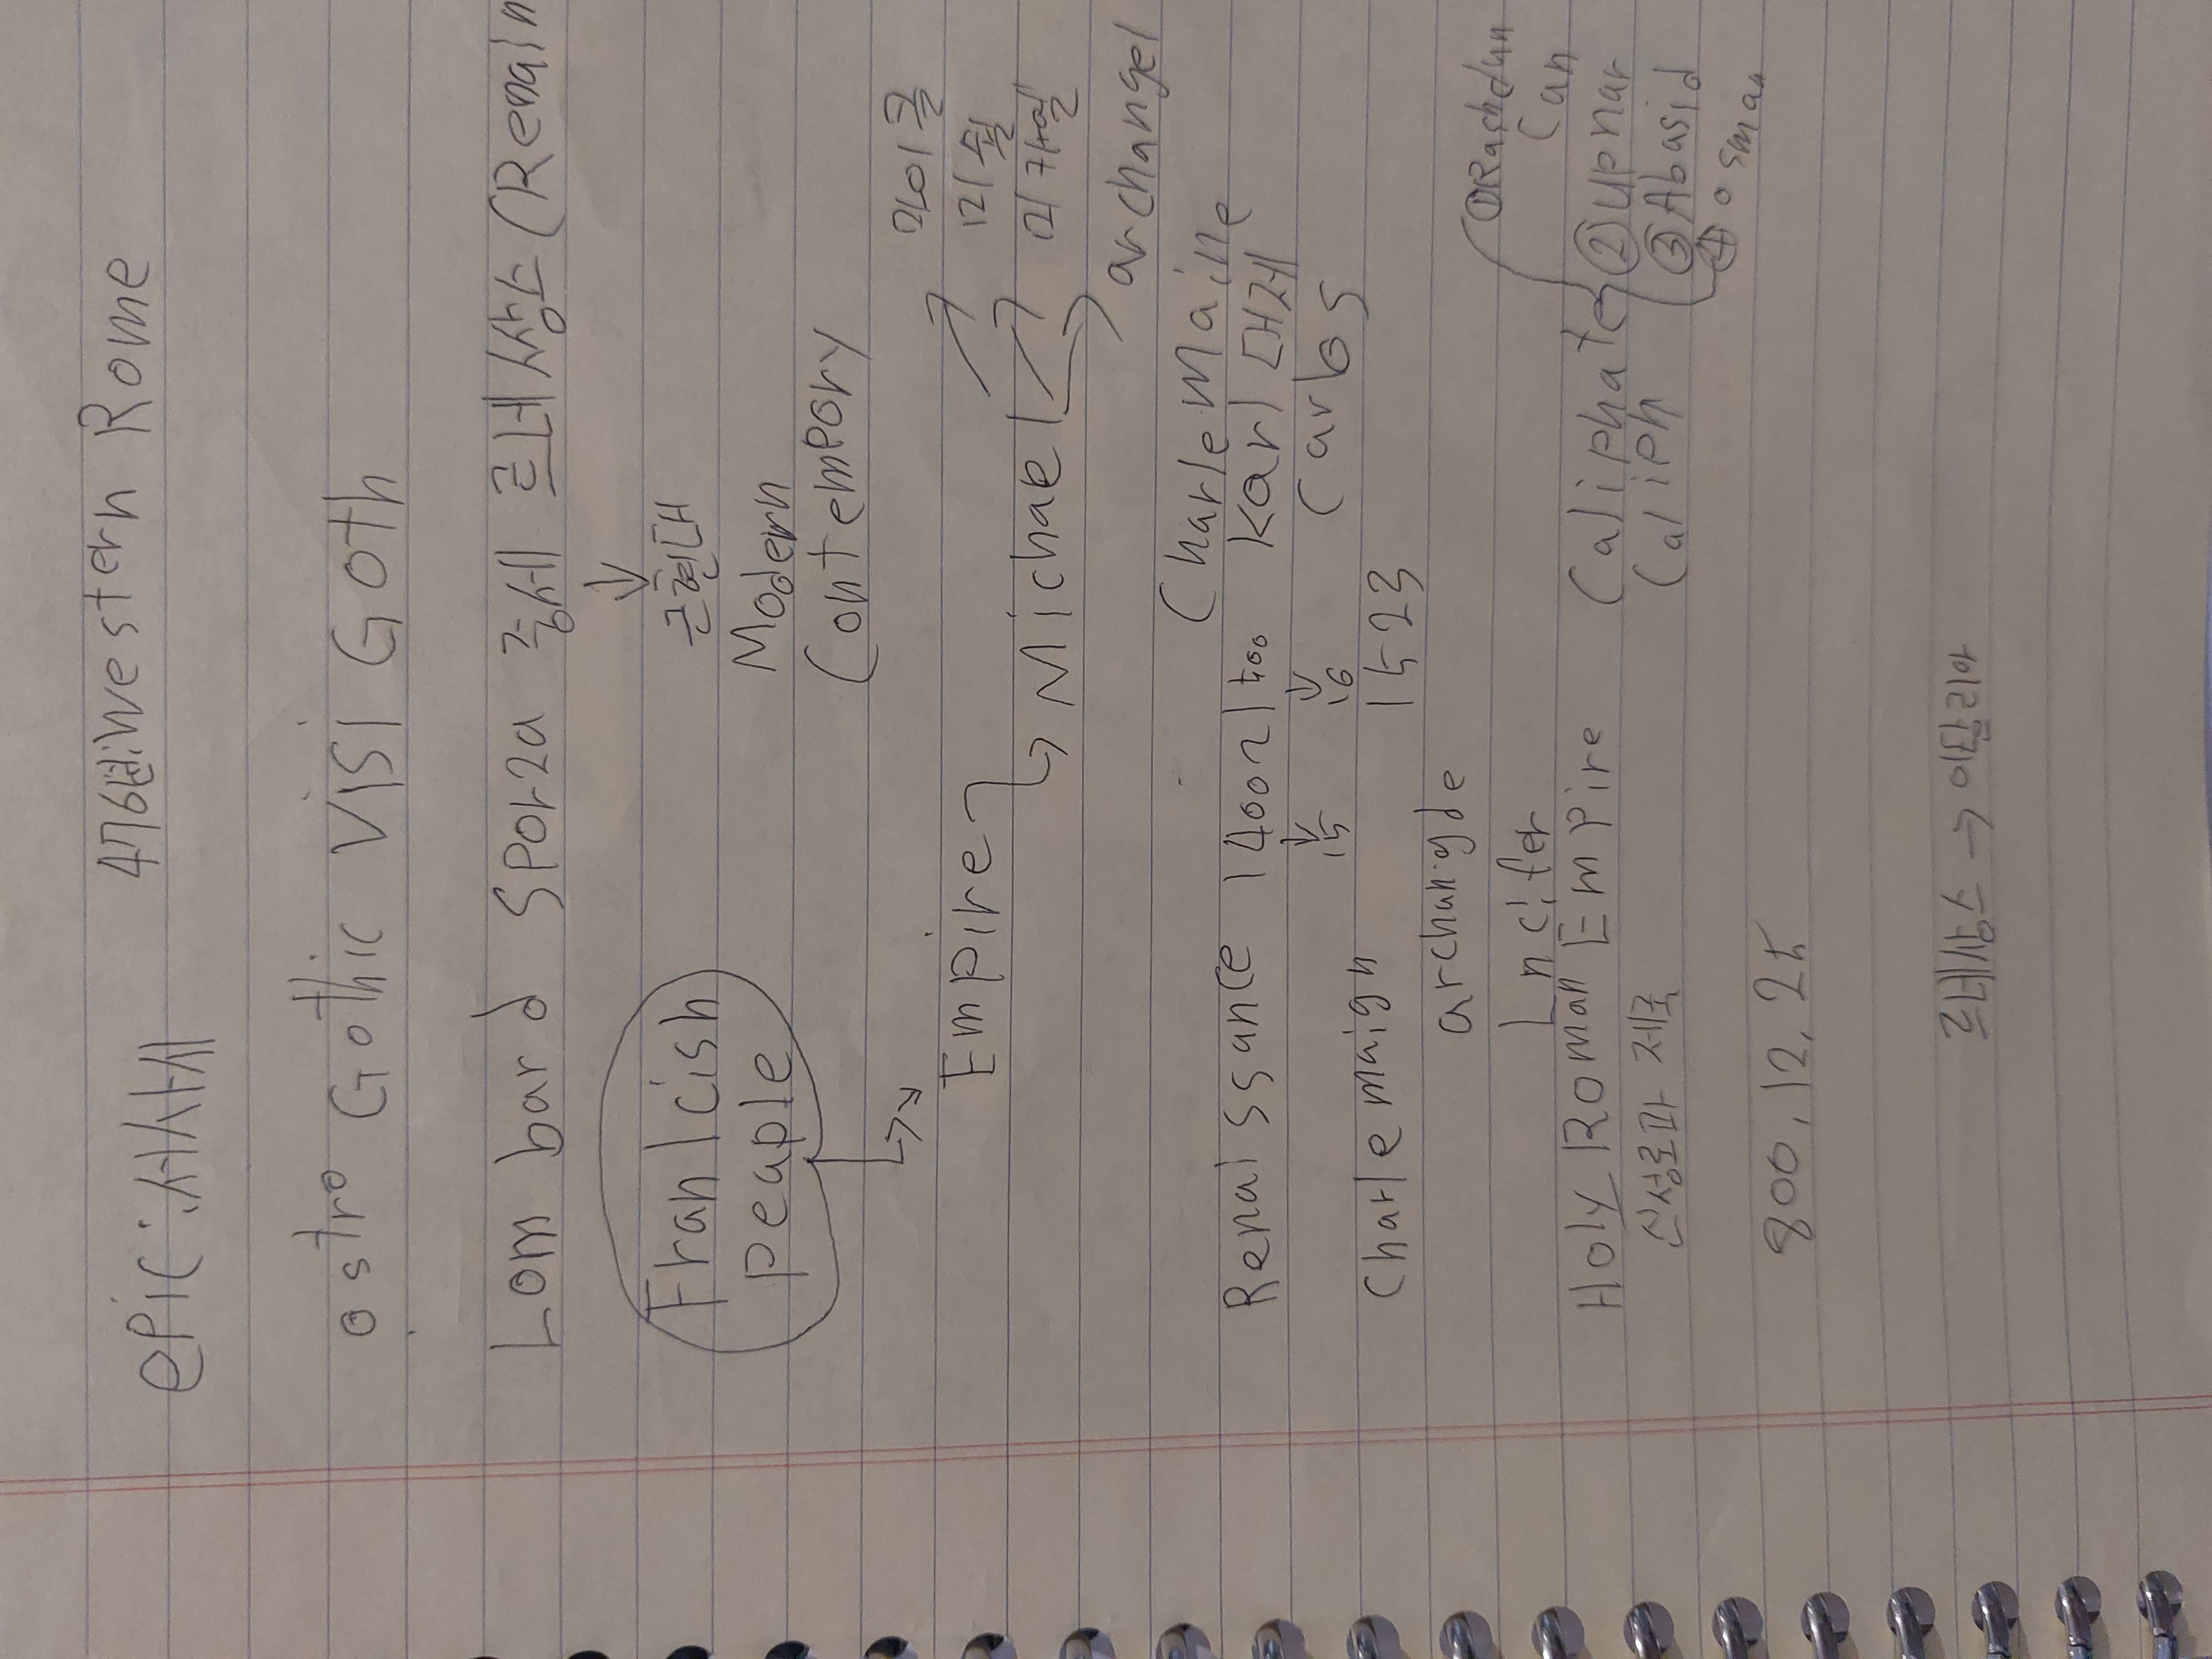 epic : 서사시 476년 western Rome
ostro Gothic VISI GOTH
Lombard Sporza 중세 르네상스 (Renain
근현대
Modern
Contempory
Franlcish
peaple
마이클
Empire 미쉘
Michael 미카엘
archangel
Charlemaille
Renaissance 1400n1500 Karl 대제
15 16 Carlos
Charlemaign 1523
archangde
Lncifer
①Rashdun
Can
Holy Roman Empire Caliphate ②upnar
신성로마 제국 Caliph ③Abasid
④osman
800, 12, 25
르네상스 → 이탈리아